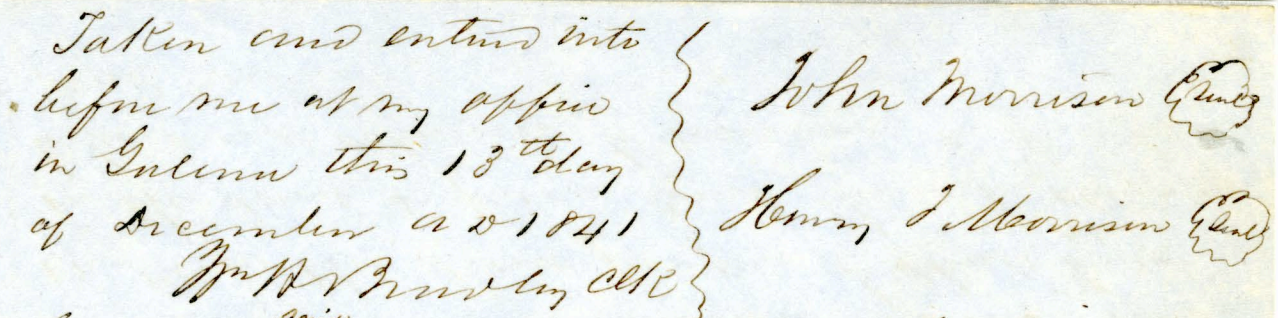 Taken and entered into
before me at my office
in Galena this 13th day
of December A D 1841
Wm H Bradley Clk
John Morrison (Seal)
Henry J Morrison (Seal)